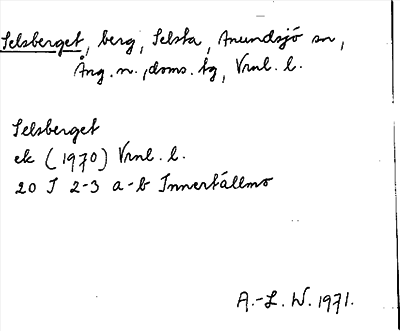 Selsberget, berg, Selsta, Anundsjö sn,
Ång. n., doms. tg, Vrnl. l.
Selsberget
ek (1970) Vrnl. l.
20 I 2-3 a-b Innertällmo
A.-L. W. 1971.